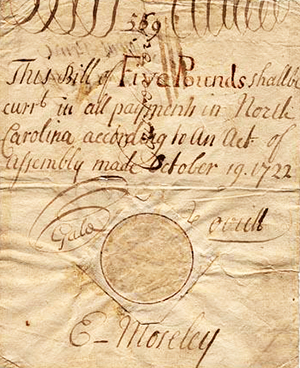 569
This Bill of Five Pounds shall be
currt in all payments in North
Carolina according to An Act of
Assembly made October 19. 1722
Gale
Lovick
E- Moseley